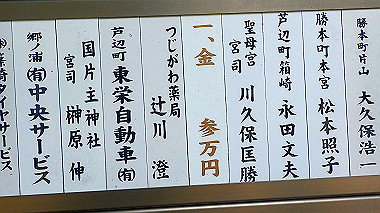 勝本町片山 大久保浩一
勝本町本宮 松本照子
芦辺町箱崎 永田文夫
聖母宮 宮司 川久保匡勝
一、金 参万円
つじがわ薬局 辻川 澄
芦辺町 東栄自動車㈲
国片主神社 宮司 榊原 伸
郷ノ浦 ㈲中央サービス
タイヤサービス